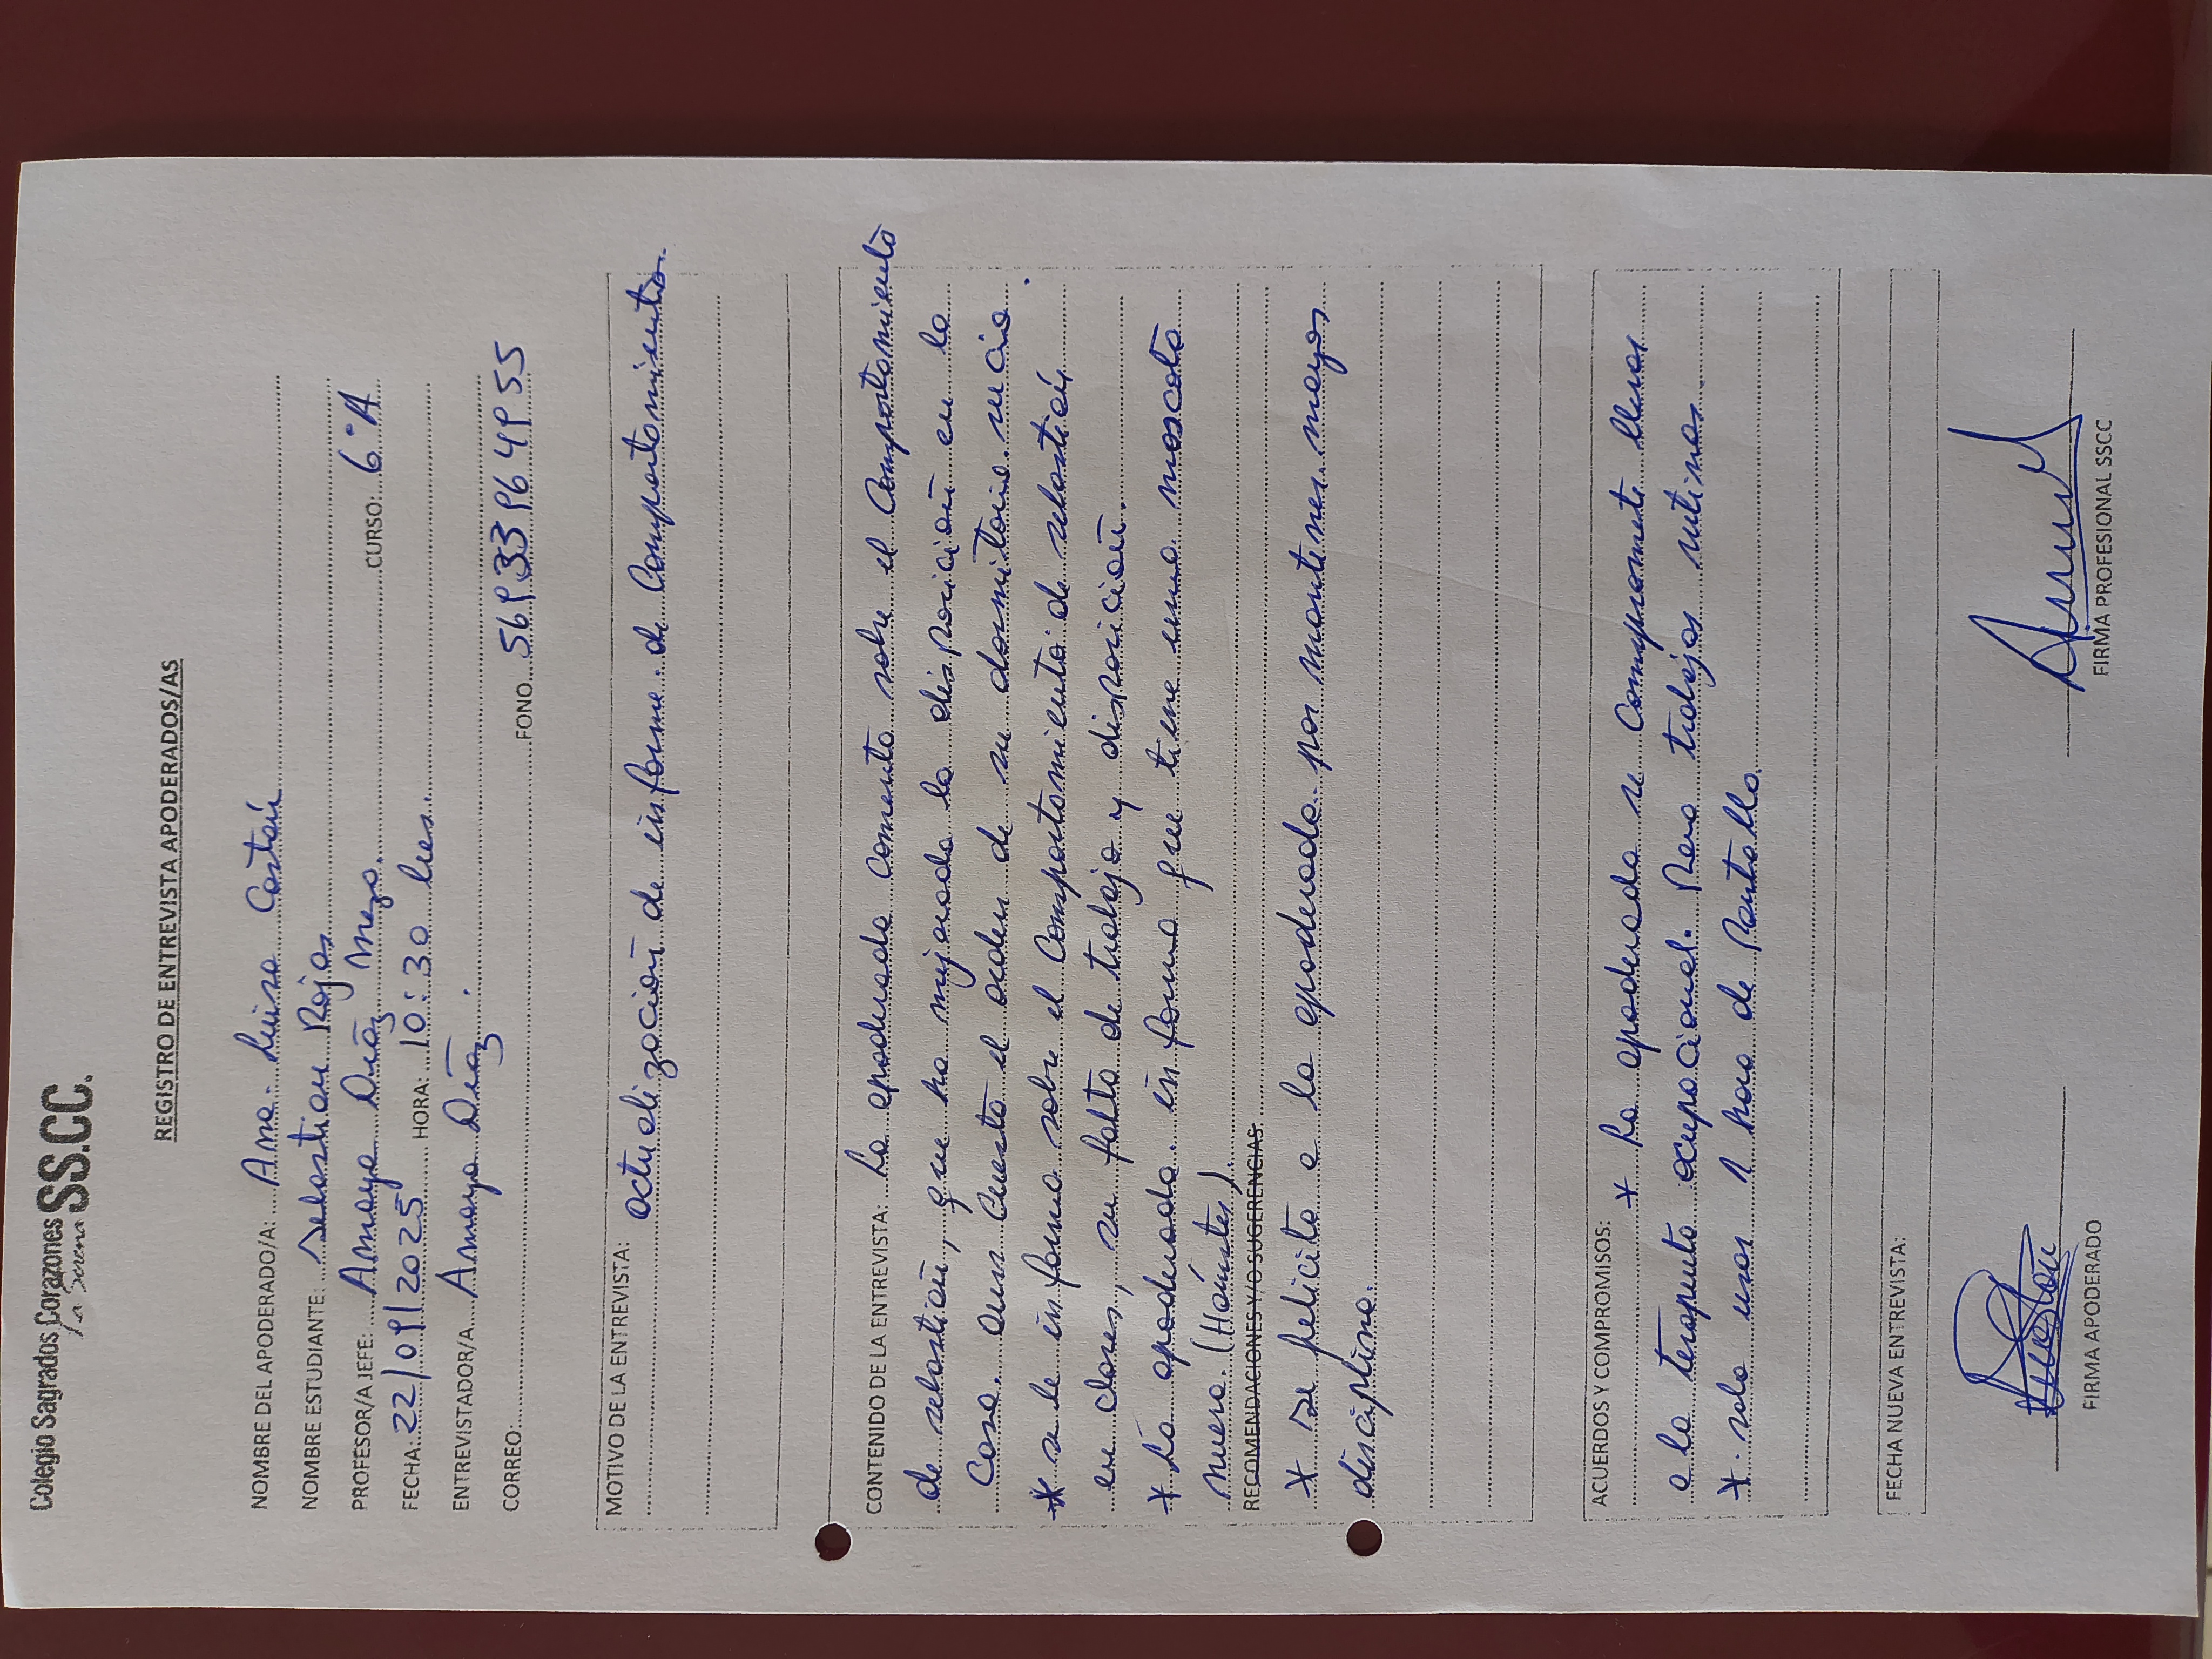 Colegio Sagrados Corazones SS.CC.
La Serena
REGISTRO DE ENTREVISTA APODERADOS/AS
NOMBRE DEL APODERADO/A: Ana Luisa Castán
NOMBRE ESTUDIANTE: sebastian Rojas
PROFESOR/A JEFE: Amaya Diaz Meza. CURSO: 6°A
FECHA: 22/09/2025 HORA: 10:30 hrs.
ENTREVISTADOR/A Amaya Diaz.
CORREO: FONO 569 33 96 49 55
MOTIVO DE LA ENTREVISTA:
actualización de informe de Comportamiento.
CONTENIDO DE LA ENTREVISTA: La apoderada comenta sobre el Comportamiento
de sebastián, que ha mejorado la disposición en la
Casa, aun Cuesta el orden de su dormitorio. sucio.
* se le informa sobre el Comportamiento de sebastián
en clases, su falta de trabajo y disposición.
* La apoderada informa que tiene una mascota
nueva. (Hámster).
RECOMENDACIONES Y/O SUGERENCIAS:
* se felicita a la apoderada por mantener mayor
disciplina.
ACUERDOS Y COMPROMISOS: * La apoderada se Compromete llevar
a la terapeuta ocupacional. Para trabajar rutinas.
* solo usar 1 hora de Pantalla.
FECHA NUEVA ENTREVISTA:
FIRMA APODERADO FIRMA PROFESIONAL SSCC